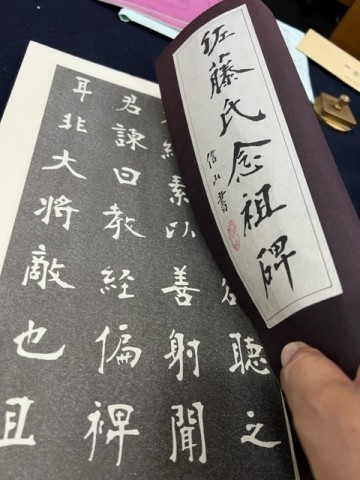 佐藤氏念祖碑
信山書
聴之
素以善射聞
君諫曰教経偏裨
耳非大将敵也且